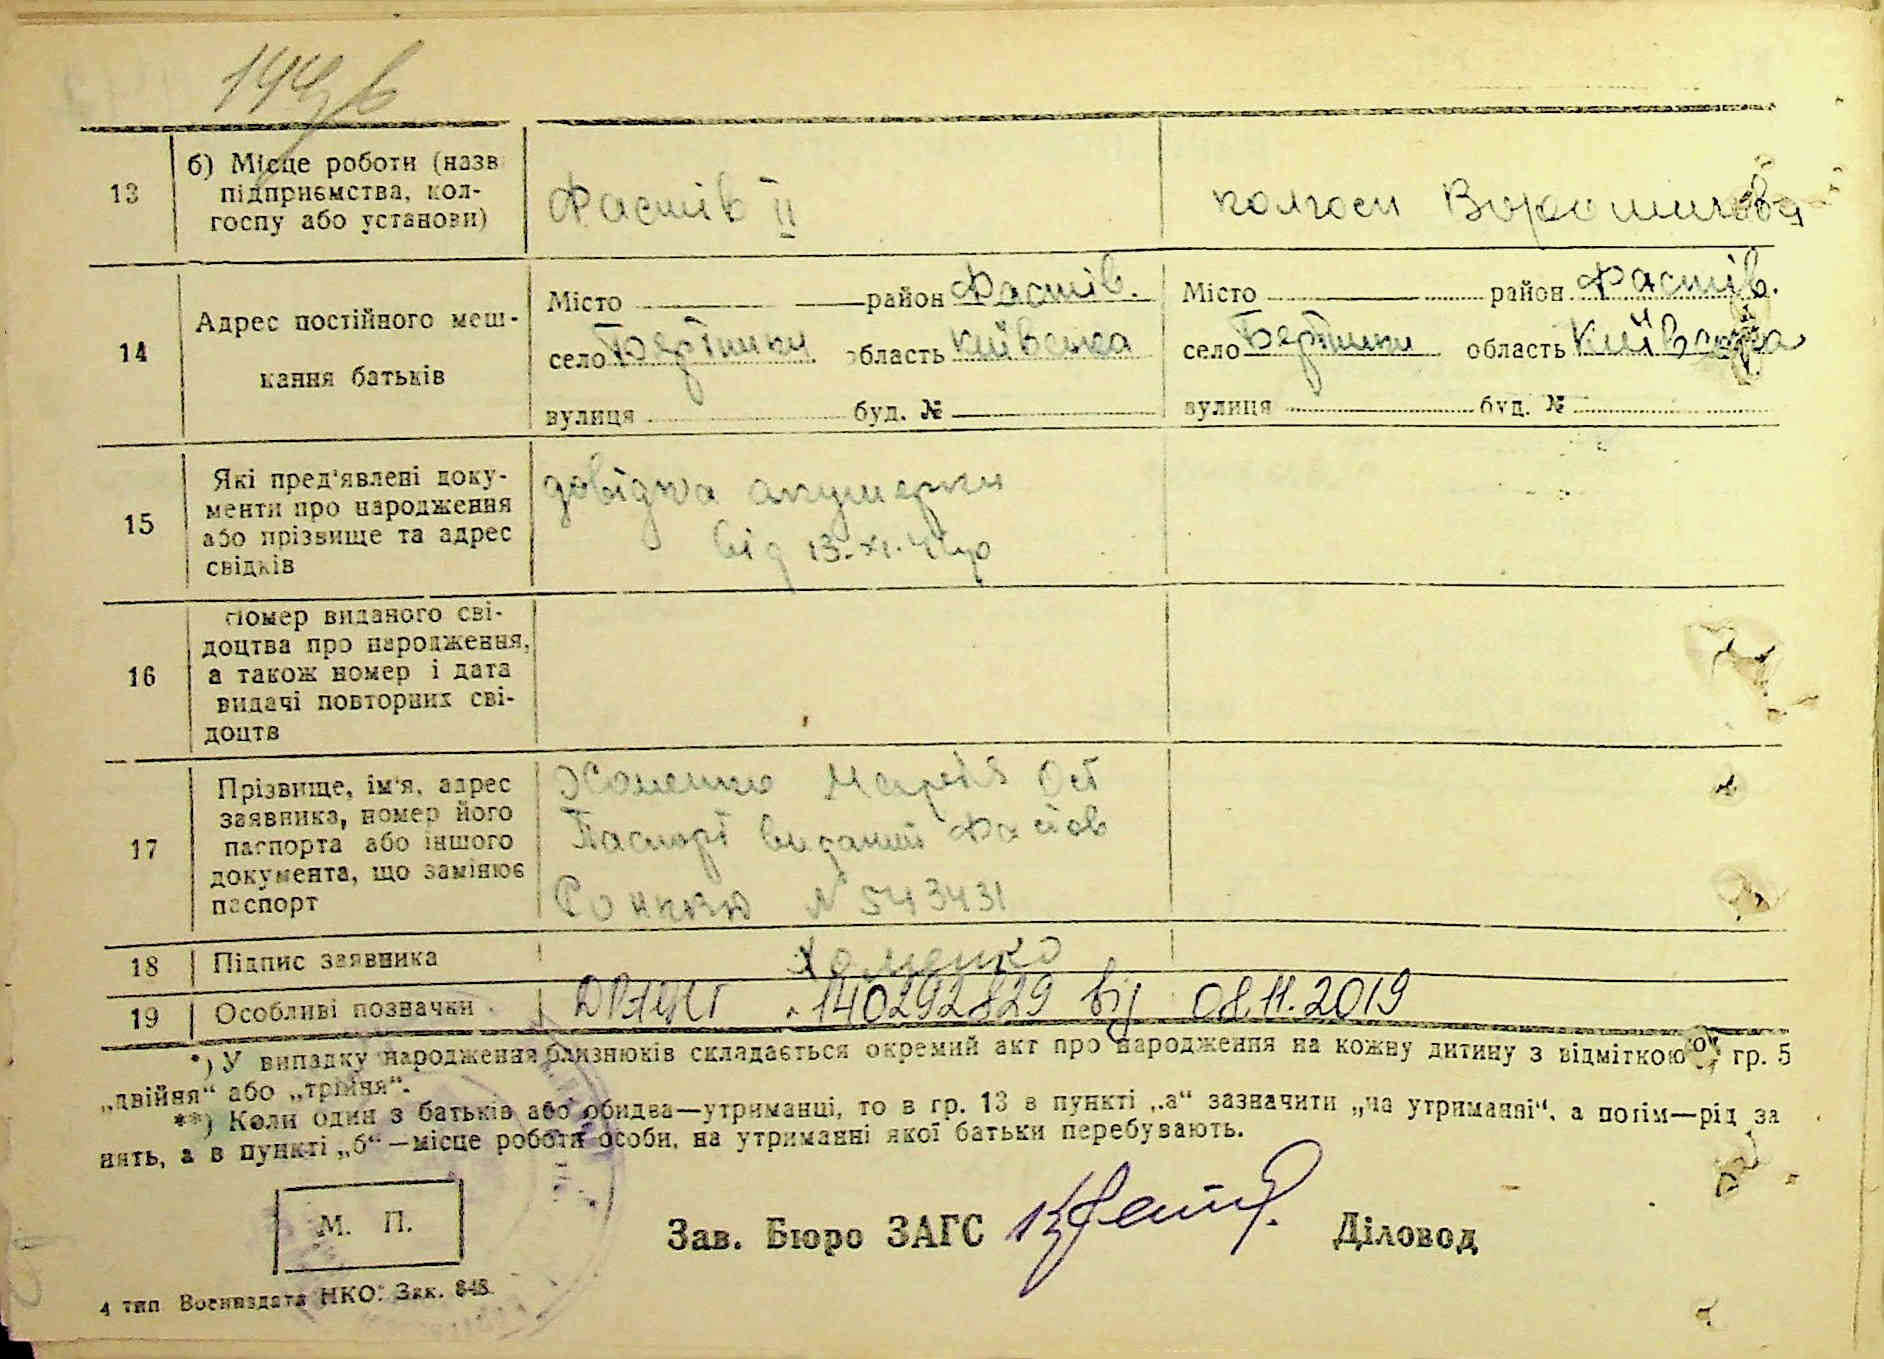 144 зв
13
б) Місце роботи (назв
підприємства, кол-
госпу або установи)
Фастів II
колгосп Ворошилова
14
Адрес постійного меш-
кання батьків
Місто район Фастів.
село область Київська
вулиця буд. №
Місто район Фастів.
село область Київська
вулиця буд. №
15
Які пред'явлені доку-
менти про народження
або прізвище та адрес
свідків
довідка акушерки
від 13.XI.
16
Номер виданого сві-
доцтва про народження,
а також номер і дата
видачі повторних сві-
доцтв
17
Прізвище, ім'я, адрес
заявника, номер його
паспорта або іншого
документа, що замінює
паспорт
Хоменко Марія Ост
Паспорт виданий Фастов
№ 543431
18
Підпис заявника
Хоменко
19
Особливі позначки
140292829 від 08.11.2019
*) У випадку народження близнюків складається окремий акт про народження на кожну дитину з відміткою у гр. 5
„двійня“ або „трійня“.
**) Коли один з батьків або обидва—утриманці, то в гр. 13 в пункті „а“ зазначити „на утриманні“, а потім—рід за
нять, а в пункті „б“—місце роботи особи, на утриманні якої батьки перебувають.
М. П.
Зав. Бюро ЗАГС
Діловод
4 тип Воениздата НКО. Зак. 848.